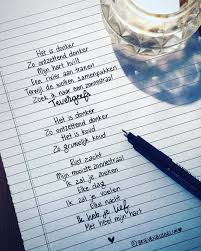 Het is donker
Zo ontzettend donker
Mijn hart huilt
Een rivier aan tranen
Terwijl de wolken samenpakken
Zoek ik naar een zonnestraal
Tevergeefs
Het is donker
Zo ontzettend donker
Het is koud
Zo gruwelijk koud
Rust zacht
Mijn mooiste zonnestraal
Ik zal je zoeken
Elke dag
Ik zal je voelen
Elke nacht
Ik heb je lief
Met heel mijn hart